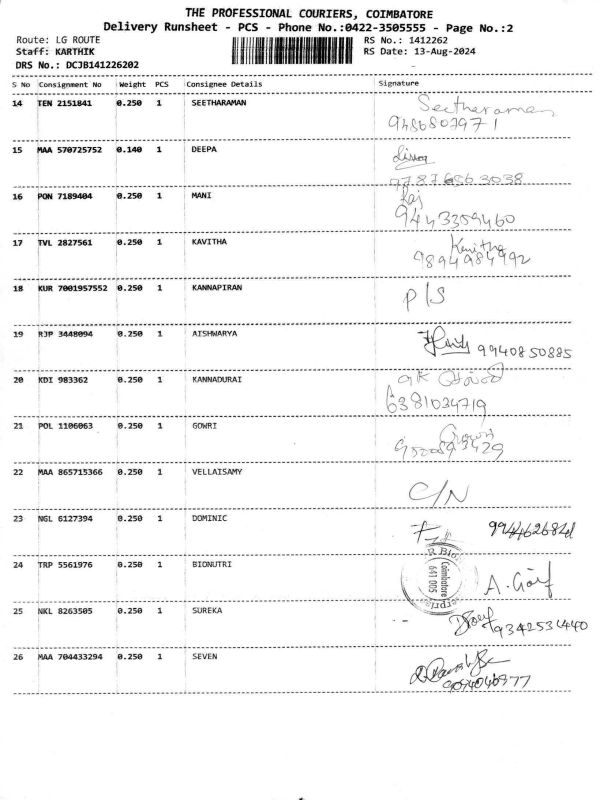 THE PROFESSIONAL COURIERS, COIMBATORE
Delivery Runsheet - PCS - Phone No.:0422-3505555 - Page No.:2
Route: LG ROUTE RS No.: 1412262
Staff: KARTHIK RS Date: 13-Aug-2024
DRS No.: DCJB141226202
S No Consignment No Weight PCS Consignee Details Signature
14 TEN 2151841 0.250 1 SEETHARAMAN Seetharaman
15 MAA 570725752 0.140 1 DEEPA
97876563038
16 PON 7189404 0.250 1 MANI Raj
9443359460
17 TVL 2827561 0.250 1 KAVITHA Kavitha
9894984992
18 KUR 7001957552 0.250 1 KANNAPIRAN P/S
19 RJP 3448094 0.250 1 AISHWARYA 9940850885
20 KDI 983362 0.250 1 KANNADURAI
6381034719
21 POL 1106063 0.250 1 GOWRI Gowri
22 MAA 865715366 0.250 1 VELLAISAMY C/N
23 NGL 6127394 0.250 1 DOMINIC
24 TRP 5561976 0.250 1 BIONUTRI Coimbatore 641 005
25 NKL 8263505 0.250 1 SUREKA 9342531440
26 MAA 704433294 0.250 1 SEVEN